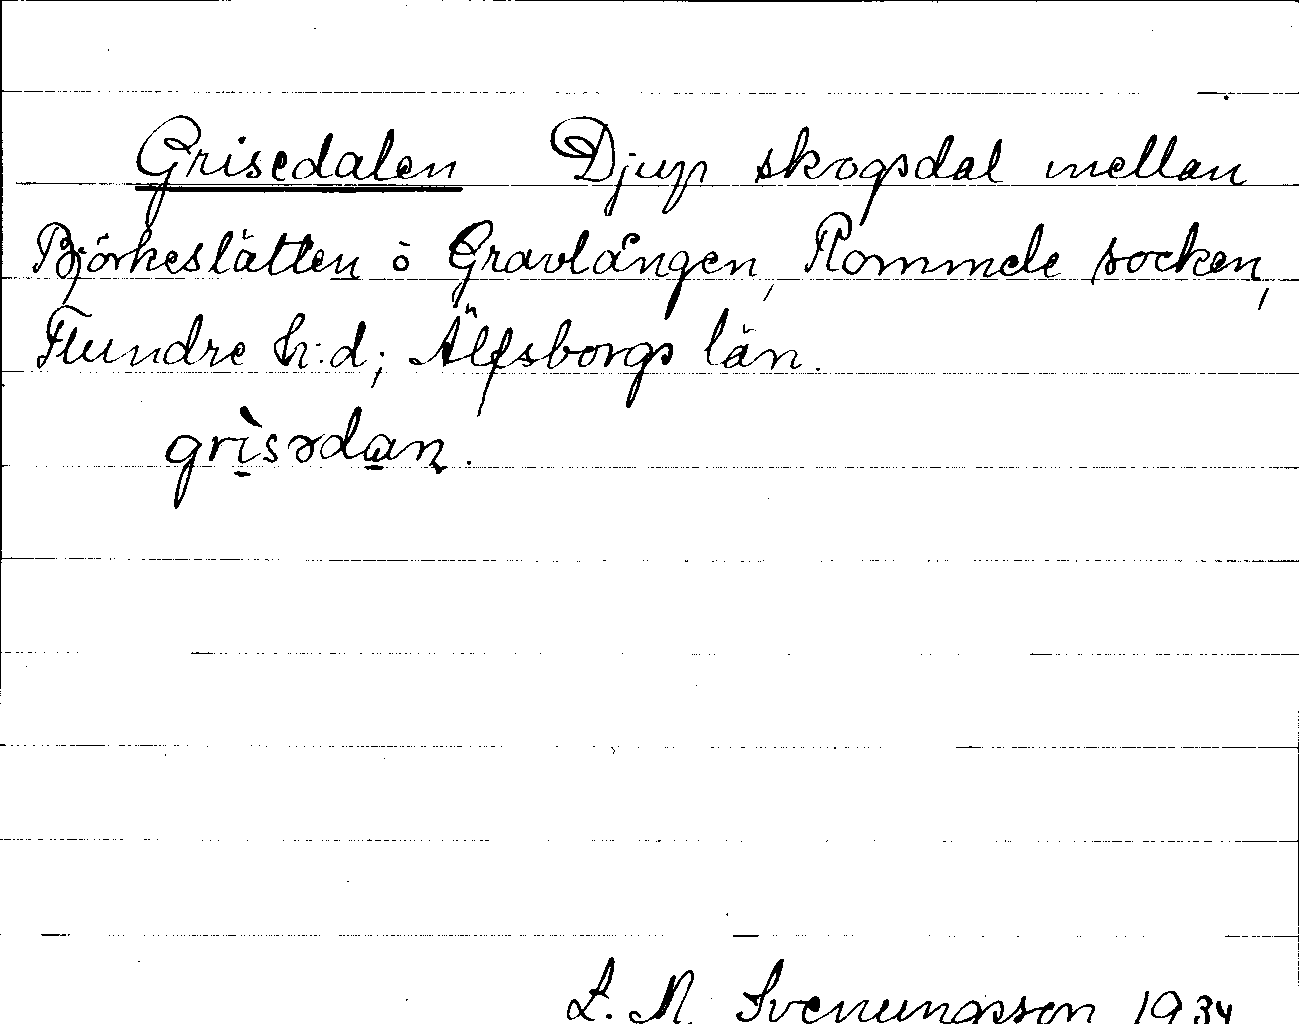 Grisedalen Djup skogsdal mellan
Björkeslätten ö Gravlången, Rommele socken,
Flundre h:d; Älfsborgs län.
grìsədan.
L. M. Svenungsson 1934